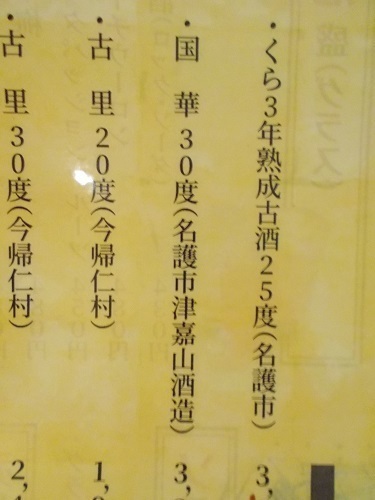 ・くら3年熟成古酒25度(名護市) 3,
・国 華30度(名護市津嘉山酒造) 3,
・古 里20度(今帰仁村) 1,
・古 里30度(今帰仁村) 2,